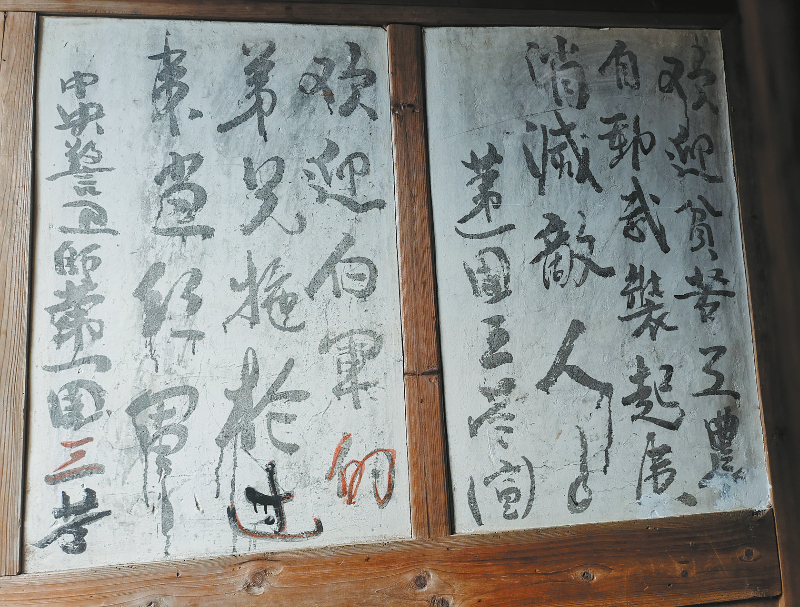 欢迎貧苦工農
自動武裝起來
消滅敵人！
第一团三营宣
欢迎白軍的
弟兄拖枪过
来当红軍
中央警卫師第一团三营